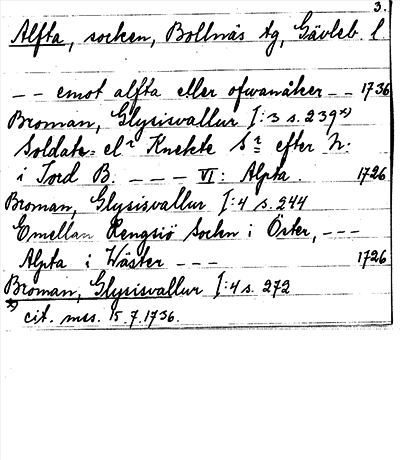 3.
Alfta, socken, Bollnäs tg, Gävleb. l.
-- emot alfta eller ofwanåker -- 1736
Broman, Glysisvallur I:3 s. 239 x)
Soldate- elr Knekte Sr efter N:
i Tord B. --- VI: Alpta. 1726
Broman, Glysisvallur I:4 s. 244
Emellan Rengsiö Socken i Öster, ---
Alpta i Wäster --- 1726
Broman, Glysisvallur I:4 s. 272
x) cit. mss. 15.7.1736.